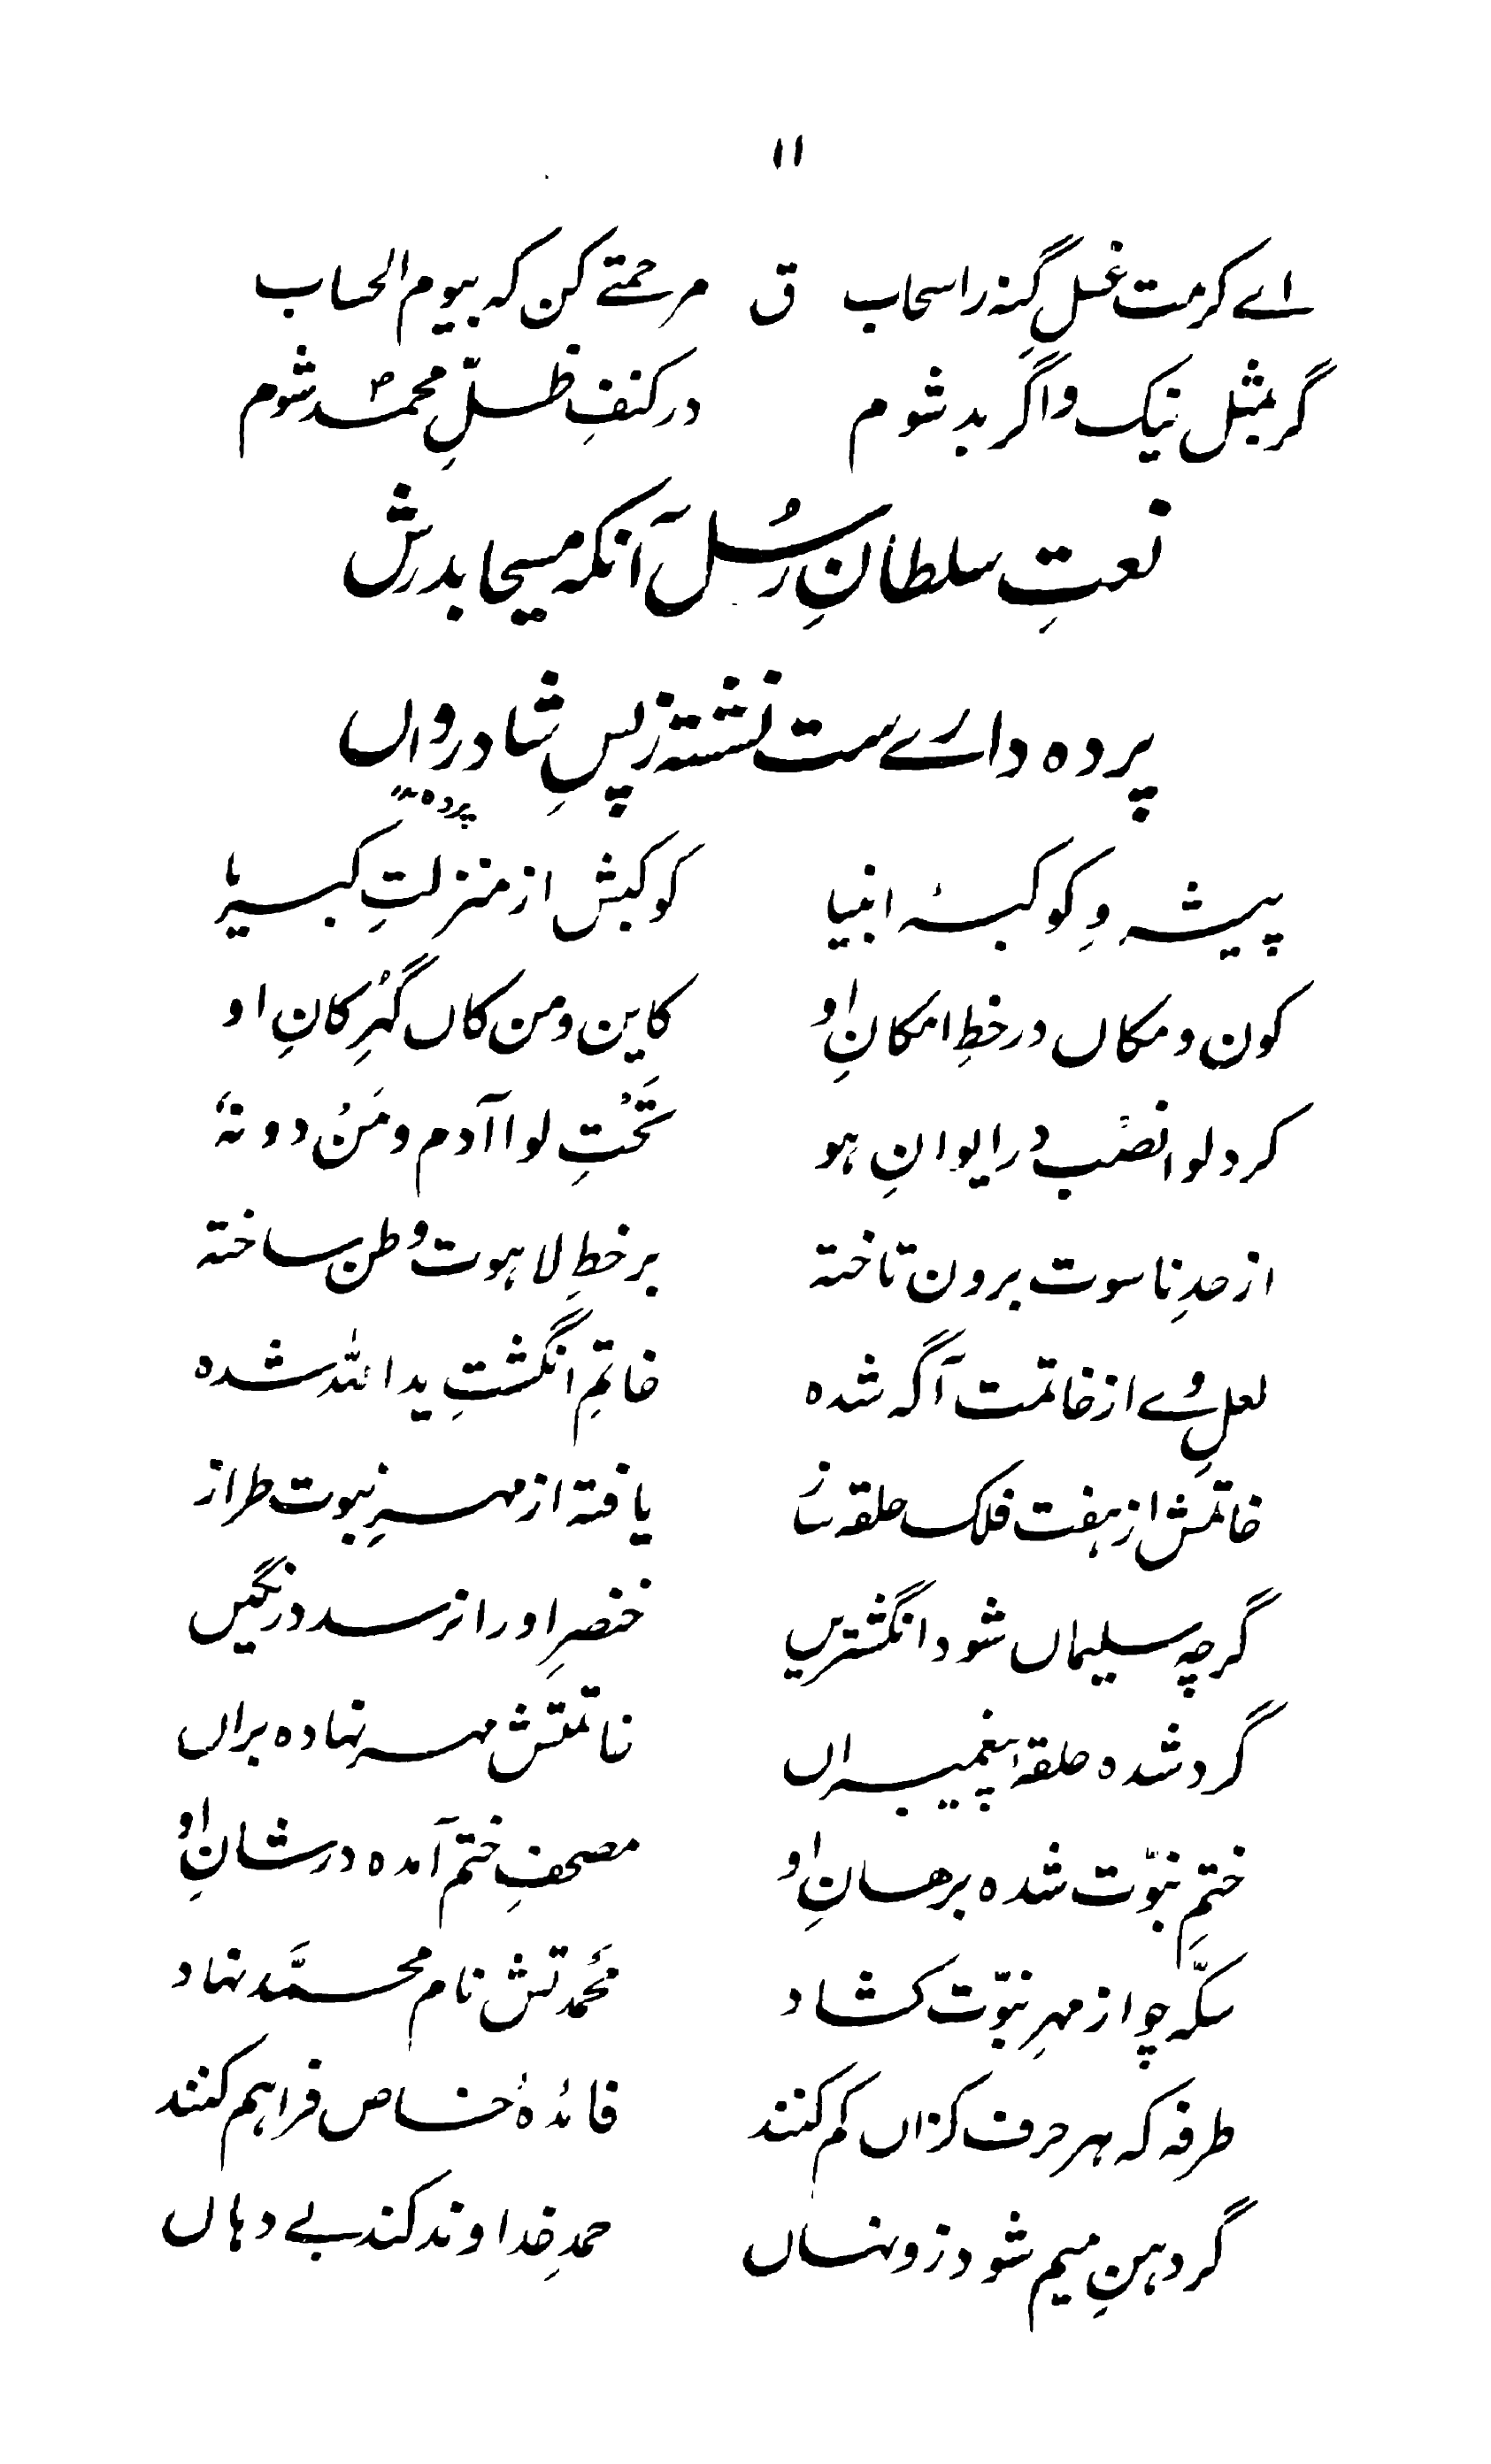 ۱۱
اے کرمت غسلِ گنہ را سحاب ق مرحمتے کن کہ بیوم الحساب
گر بمثل نیک و اگر بد شوم در کنفِ ظلِّ محمدؐ شوم
نعتِ سلطانِ رُسل آنکہ مسیحا بدرش
پردہ دارے ست نشستہ ز پسِ شادرواں
پیشروِ کوکبۂ انبیا کوکبش از منزلتِ کبریا
کون و مکاں در خطِ امکانِ او کاین و من کاں گہرِ کانِ او
کرد لوا نصب در ایوانِ ہو تَحْتِ لوا آدم و مَنْ دونہٗ
از حدِ ناسوت برون تاختہ بر خطِ لاہوت وطن ساختہ
لعلِ وے از خاتمت آگہ شدہ خاتمِ انگشتِ ید اللہ شدہ
خاتمش از ہفت فلک حلقہ ساز یافتہ از مہرِ نبوت طراز
گرچہ سلیماں شود انگشتریں خنصرِ او را نرسد در نگیں
گرد شدہ حلقۂ پیغمبراں خاتمتش مہر نہادہ براں
ختمِ نبوّت شدہ برہانِ او مصحفِ ختم آمدہ در شانِ او
سکّہ چو از مہرِ نبوّت کشاد مَحْمدتش نام محمَّد نہاد
طرفہ کہ ہر حرف کزاں کم کنند فائدۂ خاص فراہم کنند
گر دہنِ میم شود زو نہاں حمدِ خداوند کند بے دہاں